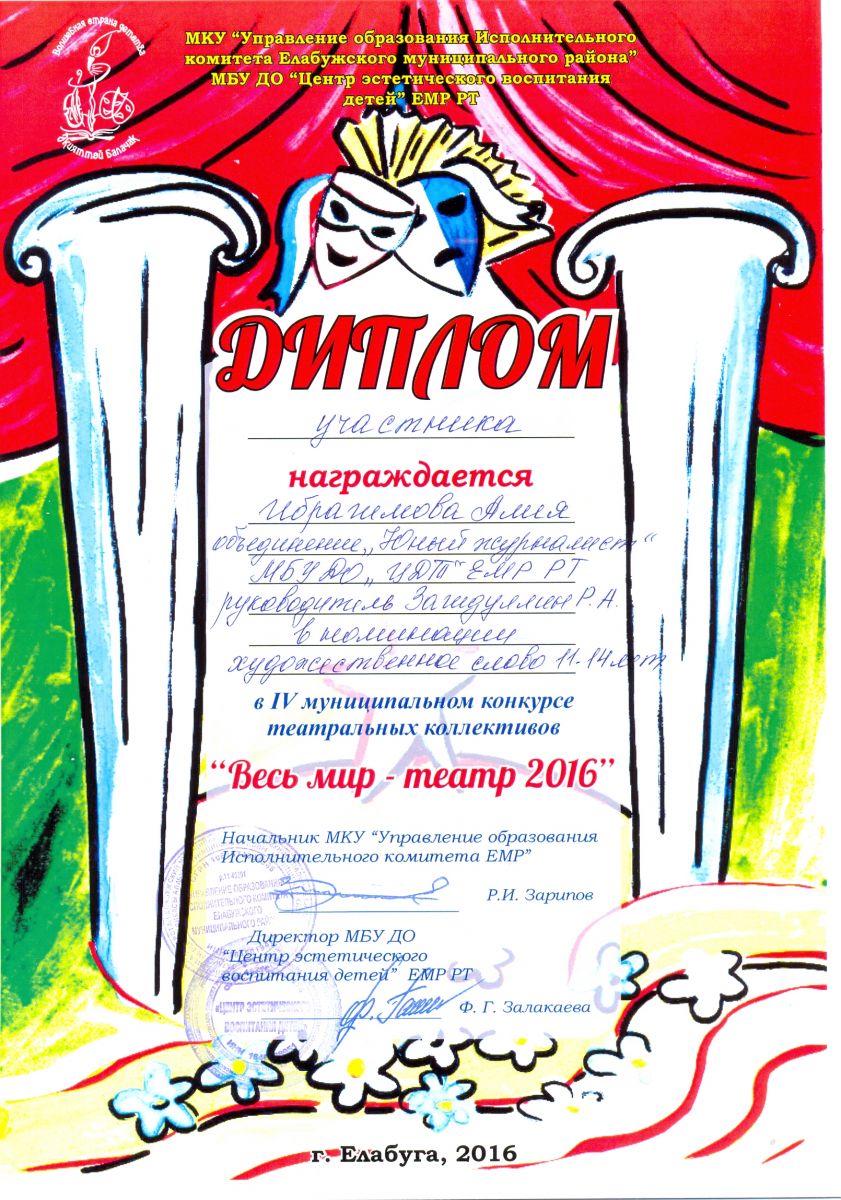 Волшебная страна детства
МКУ “Управление образования Исполнительного
комитета Елабужского муниципального района”
МБУ ДО “Центр эстетического воспитания
детей” ЕМР РТ
Балачак
ДИПЛОМ
участника
награждается
Ибрагимова Алия
объединение „Юный журналист“
МБУ ДО „ЦДТ“ ЕМР РТ
руководитель Загидуллин Р.А.
в номинации
художественное слово 11-14 лет
в IV муниципальном конкурсе
театральных коллективов
“Весь мир - театр 2016”
Начальник МКУ “Управление образования
Исполнительного комитета ЕМР”
Р.И. Зарипов
УПРАВЛЕНИЕ ОБРАЗОВАНИЯ
ИСПОЛНИТЕЛЬНОГО КОМИТЕТА
ЕЛАБУЖСКОГО
МУНИЦИПАЛЬНОГО
Директор МБУ ДО
“Центр эстетического
воспитания детей” ЕМР РТ
Ф. Г. Залакаева
«ЦЕНТР ЭСТЕТИЧЕСКОГО
ВОСПИТАНИЯ ДЕТЕЙ»
г. Елабуга, 2016